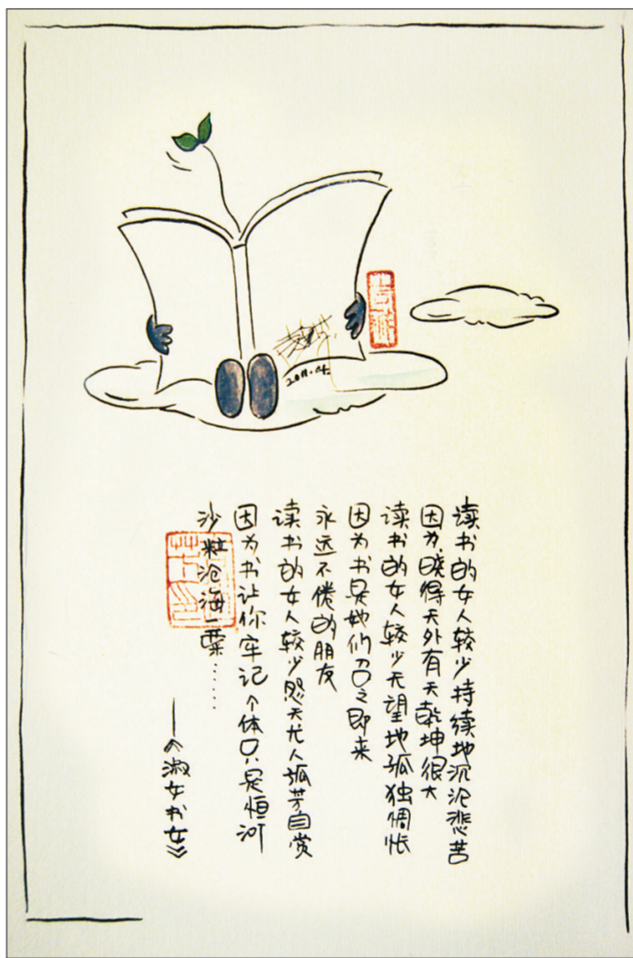 2011.04.
读书的女人较少持续地沉沦悲苦
因为晓得天外有天乾坤很大
读书的女人较少无望地孤独惆怅
因为书是她们召之即来
永远不倦的朋友
读书的女人较少怨天尤人孤芳自赏
因为书让你牢记个体只是恒河
沙粒沧海一粟……
——《淑女书女》